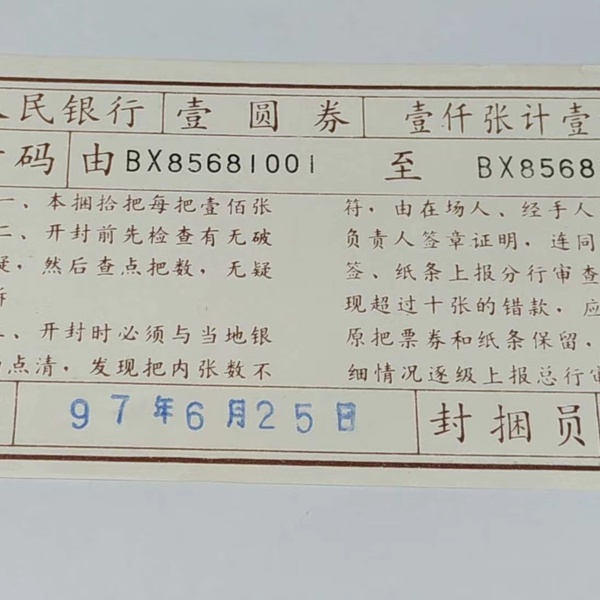 人民银行 壹圆券 壹仟张计壹
号码 由BX85681001 至 BX8568
一、本捆拾把每把壹佰张
二、开封前先检查有无破
疑，然后查点把数，无疑
拆
、开封时必须与当地银
点清，发现把内张数不
符，由在场人、经手人
负责人签章证明，连同
签、纸条上报分行审查
现超过十张的错款，应
原把票券和纸条保留，
细情况逐级上报总行审
97年6月25日 封捆员